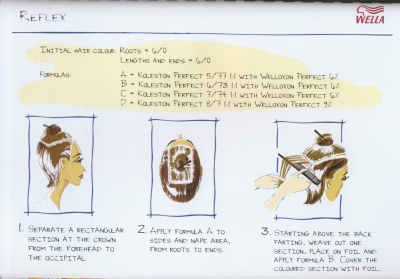 REFLEX
WELLA
INITIAL HAIR COLOUR: ROOTS = 6/0
LENGTHS AND ENDS = 6/0
FORMULAS: A = KOLESTON PERFECT 5/77 1:1 WITH WELLOXON PERFECT 6%
B = KOLESTON PERFECT 6/73 1:1 WITH WELLOXON PERFECT 6%
C = KOLESTON PERFECT 7/74 1:1 WITH WELLOXON PERFECT 6%
D = KOLESTON PERFECT 8/7 1:1 WITH WELLOXON PERFECT 9%
1. SEPARATE A RECTANGULAR
SECTION AT THE CROWN
FROM THE FOREHEAD TO
THE OCCIPITAL.
2. APPLY FORMULA A TO
SIDES AND NAPE AREA,
FROM ROOTS TO ENDS.
3. STARTING ABOVE THE BACK
PARTING, WEAVE OUT ONE
SECTION, PLACE ON FOIL AND
APPLY FORMULA B. COVER THE
COLOURED SECTION WITH FOIL.